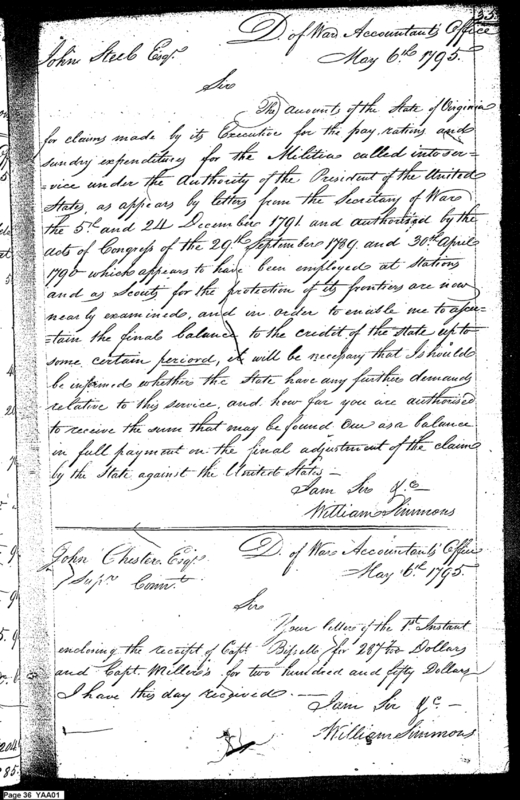 33
D. of War Accountants Office
May 6th 1795.
John Steel Esqr.
Sir
The accounts of the State of Virginia
for claims made by its Executive for the pay, rations and
sundry expenditures for the Militia called into ser-
-vice under the Authority of the President of the United
States, as appears by letters from the Secretary of War
the 5th and 24 December 1791 and authorised by the
acts of Congress of the 29th September 1789 and 30th April
1790 which appears to have been employed at stations
and as Scouts for the protection of its frontiers are now
nearly examined, and in order to enable me to ascer-
-tain the final balance to the credit of the state up to
some certain periord, it will be necessary that I should
be informed whether the State have any further demands
relative to this service, and how far you are authorised
to receive the sum that may be found due as a balance
in full payment on the final adjustment of the claim
by the State against the United States —
I am Sir &c —
William Simmons
D. of War Accountants Office
May 6th 1795.
John Chester Esqr.
Supr. Connt.
Sir
Your letters of the 1st Instant
enclosing the receipt of Capt Bissells for 287 Dollars
and Capt. Miller's for two hundred and fifty Dollars
I have this day received. —
I am Sir &c —
William Simmons
85.
Page 36 YAA01